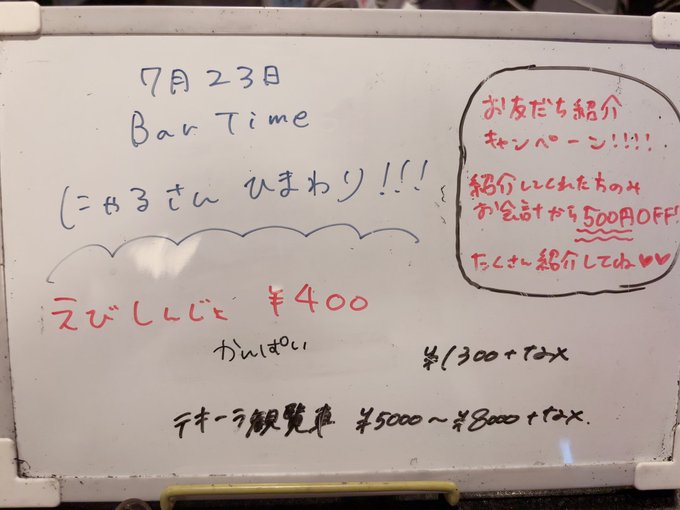 7月23日
Bar Time
にゃるさん ひまわり!!!
えびしんじょ ¥400
かんぱい ¥1300+tax
テキーラ観覧車 ¥5000～¥8000+tax.
お友だち紹介
キャンペーン!!!!
紹介してくれた方のみ
お会計から500円OFF!
たくさん紹介してね♥♥